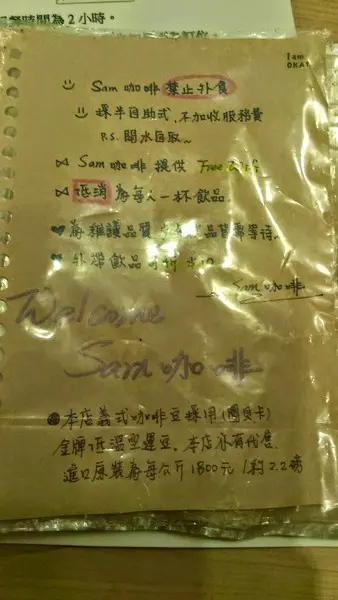 時間為2小時。
I am
OKAY
Sam 咖啡 禁止外食
採半自助式,不加收服務費
P.S. 開水自取~
Sam 咖啡 提供 Free Wifi
低消 為每人一杯飲品.
為維護品質 品皆需等待.
外帶飲品可折 $10
Sam 咖啡
Welcome
Sam 咖啡
本店義式咖啡豆採用(圖貝卡)
金牌低溫空運豆. 本店亦有代售.
進口原裝為每公斤 1800元/約2.2磅